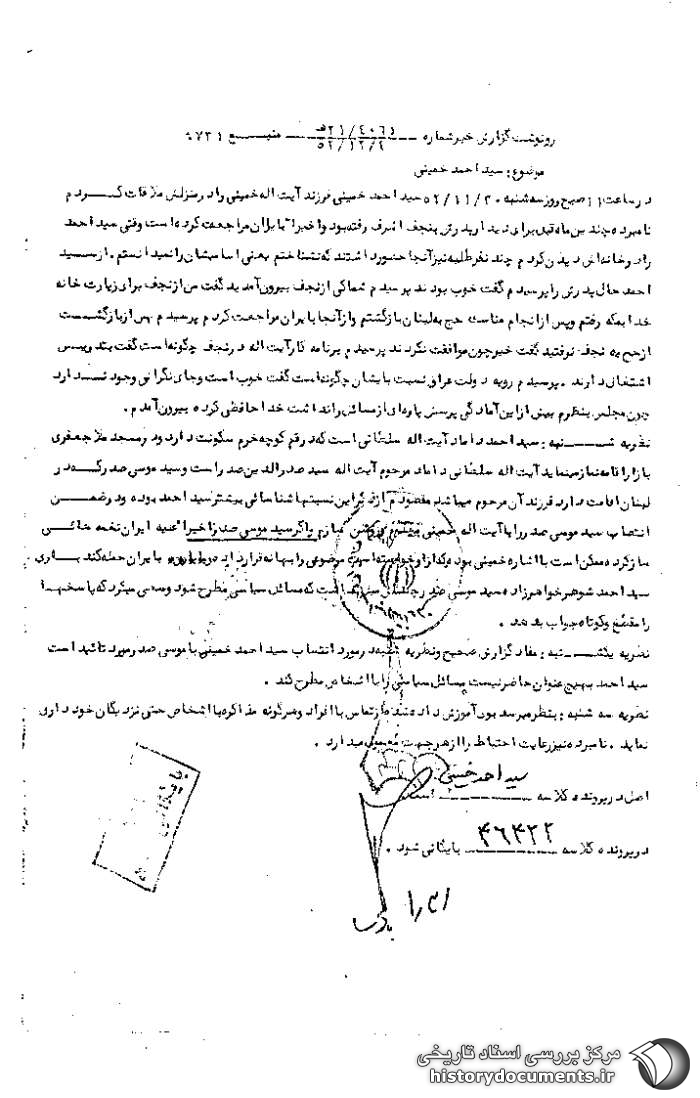 رونوشت گزارش خبر شماره ۲۱/۴۰۶۱ هـ ۵۲/۱۲/۴ منبع ۹۷۳۱
موضوع: سید احمد خمینی
در ساعت ۱۱ صبح روز سه شنبه ۵۲/۱۱/۳۰ سید احمد خمینی فرزند آیت اله خمینی را در منزلش ملاقات کردم
نامبرده چندین ماه قبل برای دیدار پدرش بنجف اشرف رفته بود و اخیرا" بایران مراجعت کرده است وقتی سید احمد
را در خانه اش دیدن کردم چند نفر طلبه نیز آنجا حضور داشتند که نشناختم یعنی اسامیشان را نمیدانستم. از سید
احمد حال پدرش را پرسیدم گفت خوب بودند پرسیدم شما کی از نجف بیرون آمدید گفت من از نجف برای زیارت خانه
خدا بمکه رفتم و پس از انجام مناسک حج به لبنان بازگشتم و از آنجا بایران مراجعت کردم پرسیدم پس از بازگشت
از حج به نجف نرفتید گفت خیر چون موافقت نکردند پرسیدم برنامه کار آیت اله در نجف چگونه است گفت بتدریس
اشتغال دارند. پرسیدم رویه دولت عراق نسبت بایشان چگونه است گفت خوب است و جای نگرانی وجود ندارد
چون مجلس بنظرم بیش از این آمادگی پرسش پاره ای از مسائل را نداشت خداحافظی کرده بیرون آمدم.
نظریه شنبه: سید احمد داماد آیت اله سلطانی است که در قم کوچه حرم سکونت دارد و در مسجد ملا جعفری
بازار اقامه نماز مینماید آیت اله سلطانی داماد مرحوم آیت اله سید صدرالدین صدر است و سید موسی صدر که در
لبنان اقامت دارد فرزند آن مرحوم میباشد مقصودم از ذکر این نسبتها شناسائی بیشتر سید احمد بوده و در ضمن
انتصاب سید موسی صدر را با آیت اله خمینی روشن سازم و اگر سید موسی صدر اخیرا" علیه ایران نغمه هائی
ساز کرده ممکن است با اشاره خمینی بوده که از او خواسته موضوعی را بهانه قرار داده بایران حمله کند. باری
سید احمد شوهر خواهرزاده سید موسی صدر است که مسائل سیاسی مطرح شود و سعی میکرد که پاسخها
را مقطع و کوتاه جواب بدهد.
نظریه یکشنبه: مفاد گزارش صحیح و نظریه شنبه در مورد انتساب سید احمد خمینی با موسی صدر مورد تائید است
سید احمد بهیچ عنوان حاضر نیست مسائل سیاسی را با اشخاص مطرح کند.
نظریه سه شنبه: بنظر میرسد بوی آموزش داده شده از تماس با افراد و هرگونه مذاکره با اشخاص حتی نزدیکان خودداری
نماید. نامبرده نیز رعایت احتیاط را از هر جهت معمول میدارد.
سید احمد خمینی
اصل در پرونده کلاسه است
در پرونده کلاسه ۴۶۴۲۲ بایگانی شود.
۳۱۲
مرکز بررسی اسناد تاریخی
historydocuments.ir